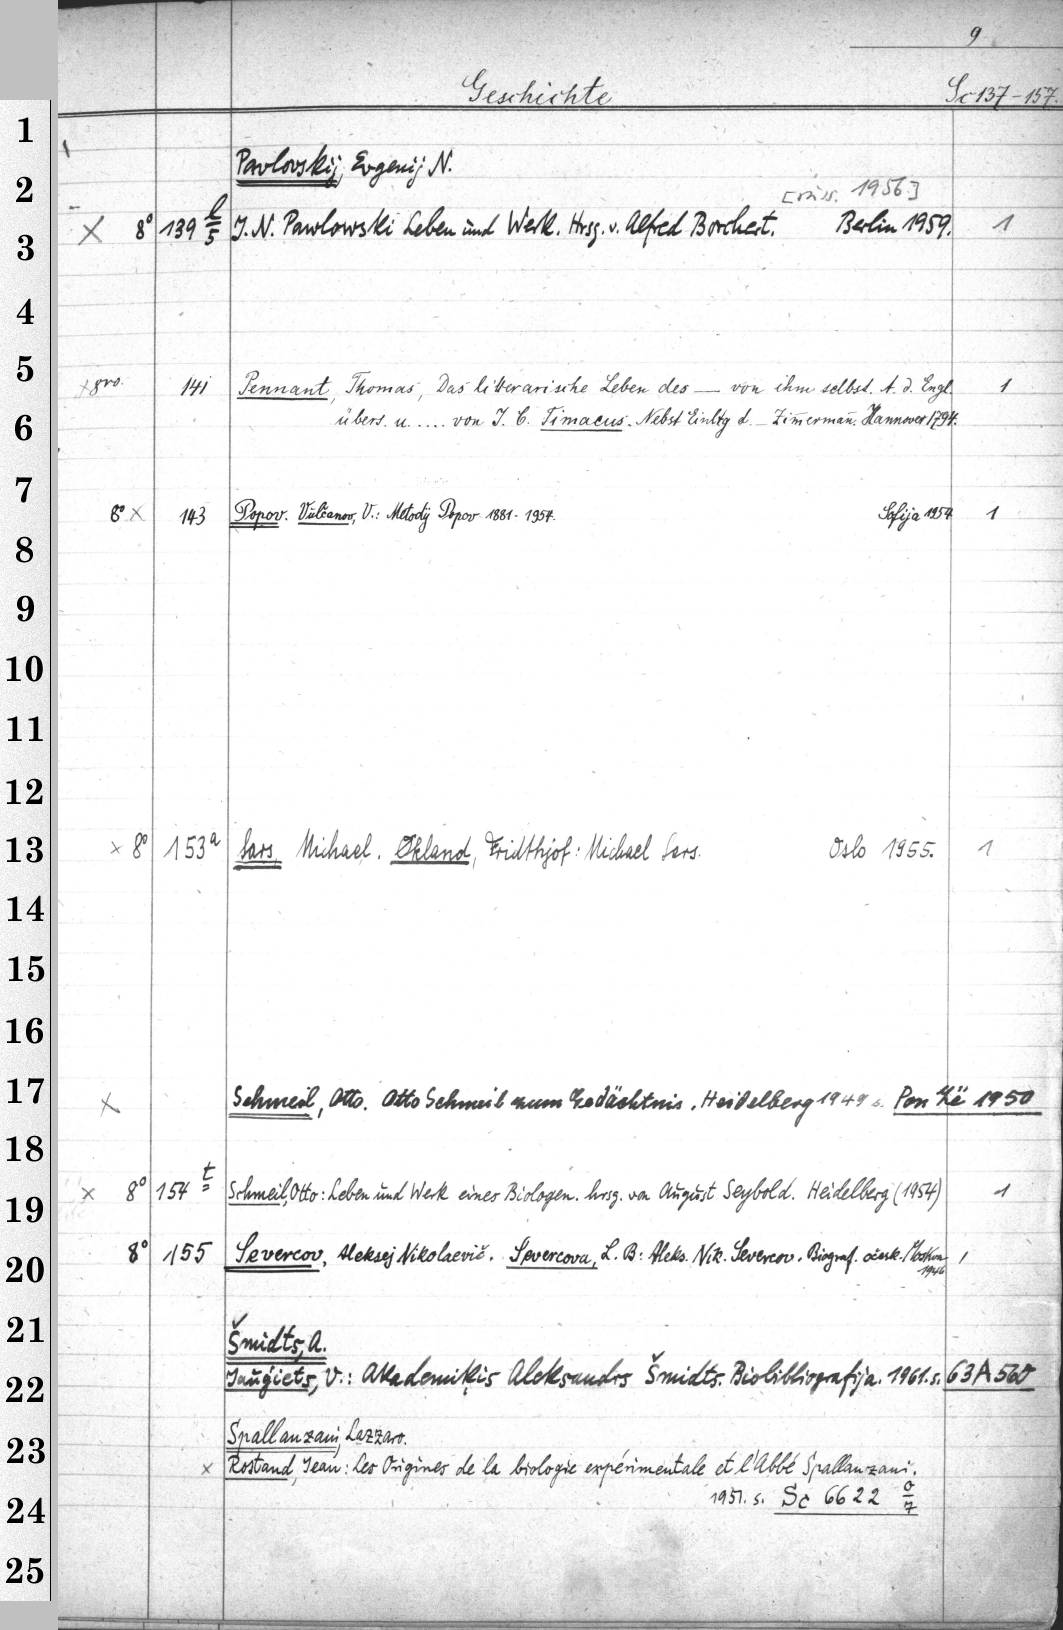 9
Geschichte Sc 137-157.
1
2
3
4
5
6
7
8
9
10
11
12
13
14
15
16
17
18
19
20
21
22
23
24
25
Pavlovskij, Evgenij N.
[russ. 1956]
X 8° 139 l/5 J. N. Pawlowski Leben und Werk. Hrsg. v. Alfred Borchert. Berlin 1959. 1
x 8vo. 141 Pennant, Thomas, Das litterarische Leben des — von ihm selbst. A. d. Engl. 1
übers. u. .... von J. C. Timaeus. Nebst Einltg d. — Zim̄erman̄. Hannover 1794.
8° x 143 Popov. Vŭlčanov, V.: Metodij Popov 1881-1954. Sofija 1954 1
x 8° 153a Sars, Michael. Økland, Fridthjof: Michael Sars. Oslo 1955. 1
x Schmeil, Otto. Otto Schmeil zum Gedächtnis. Heidelberg 1949 s. Pon Zë 1950
x 8° 154 t Schmeil, Otto: Leben und Werk eines Biologen. hrsg. von August Seybold. Heidelberg (1954) 1
8° 155 Severcov, Aleksej Nikolaevič. Severcova, L. B: Aleks. Nik. Severcov. Biograf. očerk. Moskva 1946 1
Šmidts, A.
Jaunģiets, V.: Akademiķis Aleksandrs Šmidts. Biobibliografija. 1961. s. 63 A 560
Spallanzani, Lazzaro.
x Rostand, Jean: Les Origines de la biologie expérimentale et l'Abbé Spallanzani.
1951. s. Sc 6622 o/7